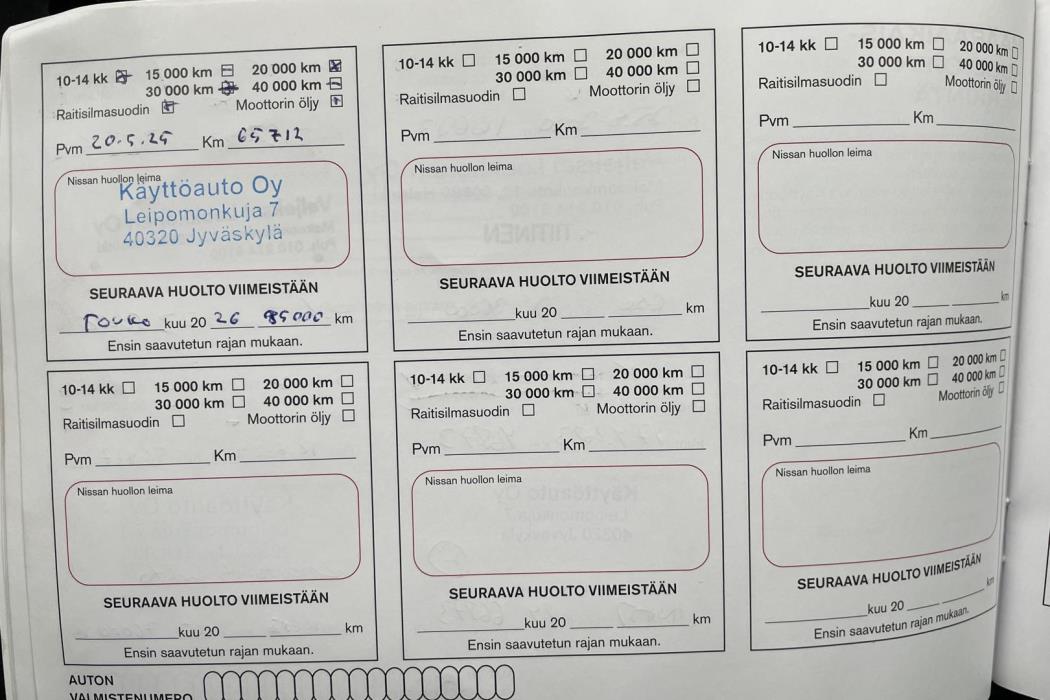 10-14 kk 15 000 km 20 000 km
30 000 km 40 000 km
Raitisilmasuodin Moottorin öljy
Pvm 20.5.25 Km 65712
Nissan huollon leima
Käyttöauto Oy
Leipomonkuja 7
40320 Jyväskylä
SEURAAVA HUOLTO VIIMEISTÄÄN
Touko kuu 20 26 85000 km
Ensin saavutetun rajan mukaan.
10-14 kk 15 000 km 20 000 km
30 000 km 40 000 km
Raitisilmasuodin Moottorin öljy
Pvm Km
Nissan huollon leima
SEURAAVA HUOLTO VIIMEISTÄÄN
kuu 20 km
Ensin saavutetun rajan mukaan.
10-14 kk 15 000 km 20 000 km
30 000 km 40 000 km
Raitisilmasuodin Moottorin öljy
Pvm Km
Nissan huollon leima
SEURAAVA HUOLTO VIIMEISTÄÄN
kuu 20 km
Ensin saavutetun rajan mukaan.
10-14 kk 15 000 km 20 000 km
30 000 km 40 000 km
Raitisilmasuodin Moottorin öljy
Pvm Km
Nissan huollon leima
SEURAAVA HUOLTO VIIMEISTÄÄN
kuu 20 km
Ensin saavutetun rajan mukaan.
10-14 kk 15 000 km 20 000 km
30 000 km 40 000 km
Raitisilmasuodin Moottorin öljy
Pvm Km
Nissan huollon leima
SEURAAVA HUOLTO VIIMEISTÄÄN
kuu 20 km
Ensin saavutetun rajan mukaan.
10-14 kk 15 000 km 20 000 km
30 000 km 40 000 km
Raitisilmasuodin Moottorin öljy
Pvm Km
Nissan huollon leima
SEURAAVA HUOLTO VIIMEISTÄÄN
kuu 20 km
Ensin saavutetun rajan mukaan.
AUTON
VALMISTENUMERO